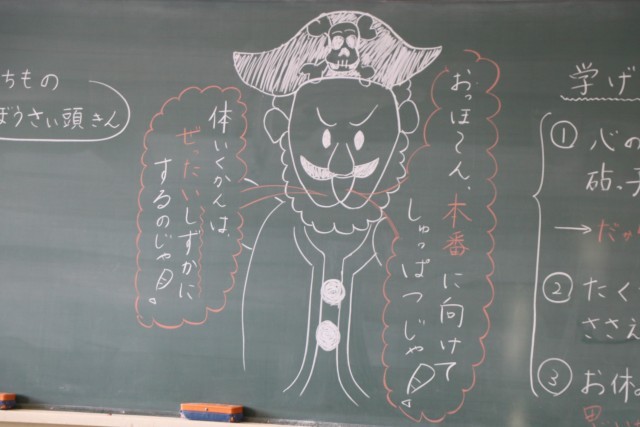 ちもの
ぼうさい頭きん
おっほ〜ん、本番に向けて
しゅっぱつじゃ!
体いくかんは、
ぜったいしずかに
するのじゃ!
学げ
① 心の
→
② たく
ささえ
③ お休